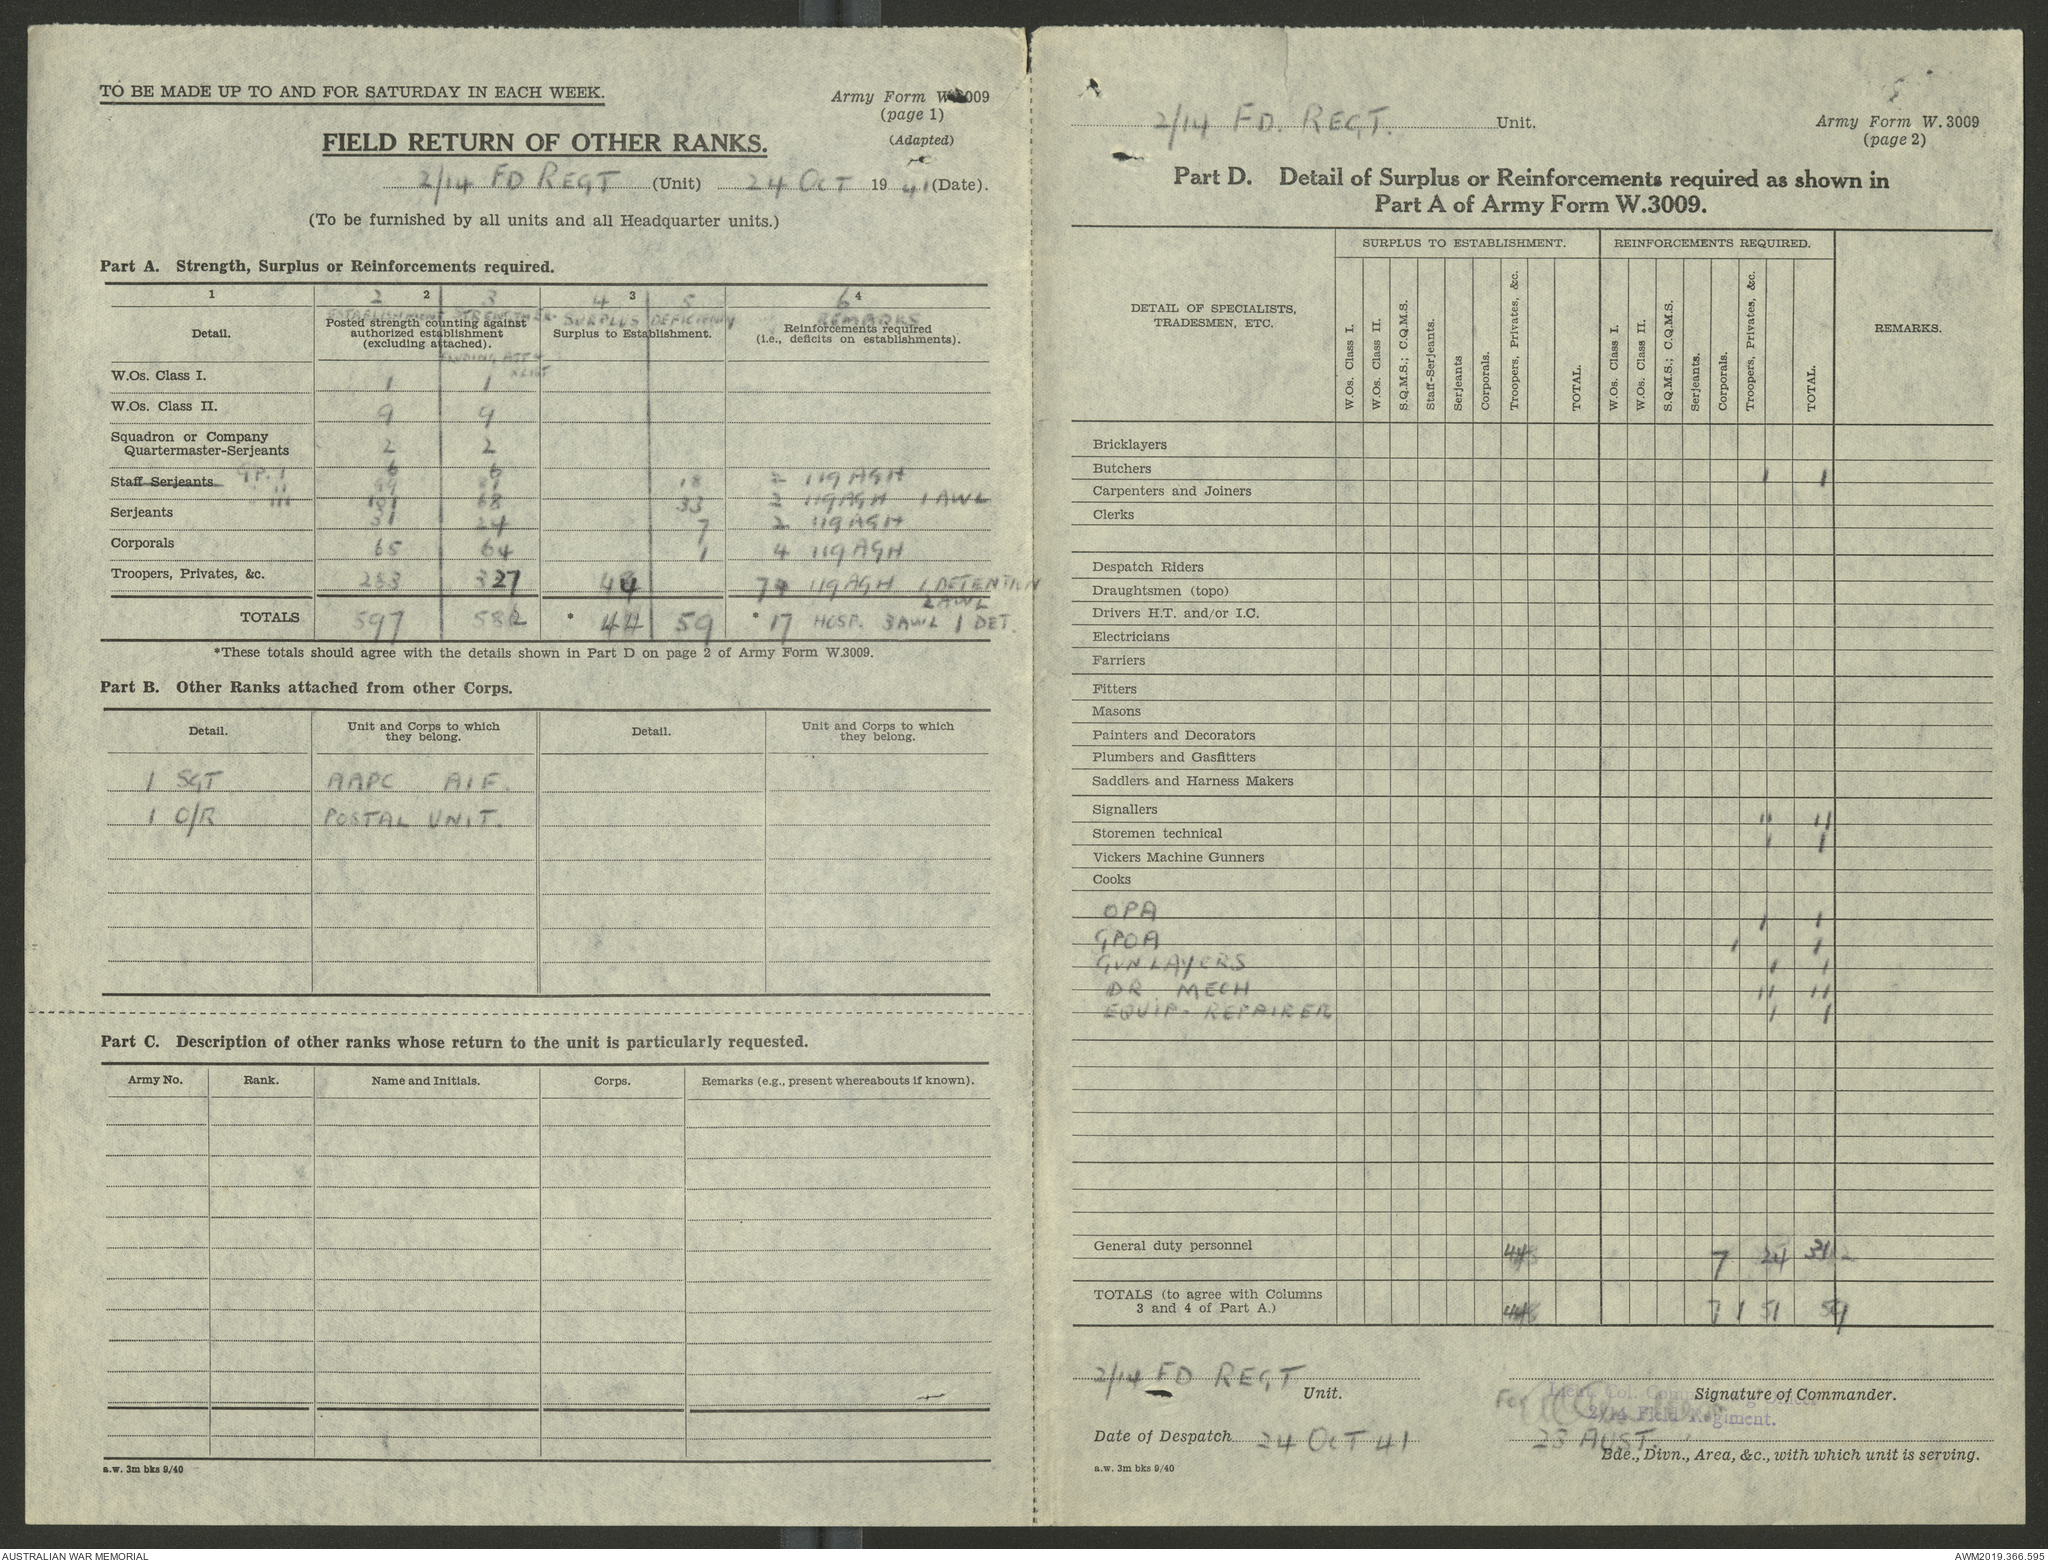 TO BE MADE UP TO AND FOR SATURDAY IN EACH WEEK.
Army Form W.3009
(page 1)
(Adapted)
FIELD RETURN OF OTHER RANKS.
2/14 FD REGT (Unit) 24 OCT 1941 (Date).
(To be furnished by all units and all Headquarter units.)
Part A. Strength, Surplus or Reinforcements required.
1 2 2 3 4 3 5 6 4
Detail.
ESTABLISHMENT
Posted strength counting against
authorized establishment
(excluding attached).
SURPLUS DEFICIENCY
Surplus to Establishment.
REMARKS
Reinforcements required
(i.e., deficits on establishments).
W.Os. Class I. 1 1
W.Os. Class II. 9 9
Squadron or Company
Quartermaster-Serjeants 2 2
6 6
Staff Serjeants GP. I 18 2 119 AGH
III 68 33 2 119 AGH 1 AWL
Serjeants 31 24 7 2 119 AGH
Corporals 65 64 1 4 119 AGH
Troopers, Privates, &c. 283 327 44 119 AGH 1 DETENTION
2 AWL
TOTALS 597 582 * 44 59 * 17 HOSP. 3 AWL 1 DET.
*These totals should agree with the details shown in Part D on page 2 of Army Form W.3009.
Part B. Other Ranks attached from other Corps.
Detail. Unit and Corps to which
they belong. Detail. Unit and Corps to which
they belong.
1 SGT AAPC AIF.
1 O/R POSTAL UNIT.
Part C. Description of other ranks whose return to the unit is particularly requested.
Army No. Rank. Name and Initials. Corps. Remarks (e.g., present whereabouts if known).
a.w. 3m bks 9/40
2/14 FD. REGT. Unit.
Army Form W.3009
(page 2)
Part D. Detail of Surplus or Reinforcements required as shown in
Part A of Army Form W.3009.
DETAIL OF SPECIALISTS,
TRADESMEN, ETC.
SURPLUS TO ESTABLISHMENT.
W.Os. Class I.
W.Os. Class II.
S.Q.M.S.; C.Q.M.S.
Staff-Serjeants.
Serjeants
Corporals.
Troopers, Privates, &c.
TOTAL.
REINFORCEMENTS REQUIRED.
W.Os. Class I.
W.Os. Class II.
S.Q.M.S.; C.Q.M.S.
Serjeants.
Corporals.
Troopers, Privates, &c.
TOTAL.
REMARKS.
Bricklayers
Butchers 1 1
Carpenters and Joiners
Clerks
Despatch Riders
Draughtsmen (topo)
Drivers H.T. and/or I.C.
Electricians
Farriers
Fitters
Masons
Painters and Decorators
Plumbers and Gasfitters
Saddlers and Harness Makers
Signallers 11 11
Storemen technical 1 1
Vickers Machine Gunners
Cooks
OPA 1 1
GPOA 1 1
GUN LAYERS 1 1
DR MECH 11 11
EQUIP. REPAIRER 1 1
General duty personnel 44 7 24 31
TOTALS (to agree with Columns
3 and 4 of Part A.) 44 7 1 51 59
2/14 FD REGT Unit.
For
Lieut. Col. Commanding Officer
2/14 Field Regiment.
Signature of Commander.
Date of Despatch 24 OCT 41
23 AUST.
Bde., Divn., Area, &c., with which unit is serving.
a.w. 3m bks 9/40
AUSTRALIAN WAR MEMORIAL
AWM2019.366.595